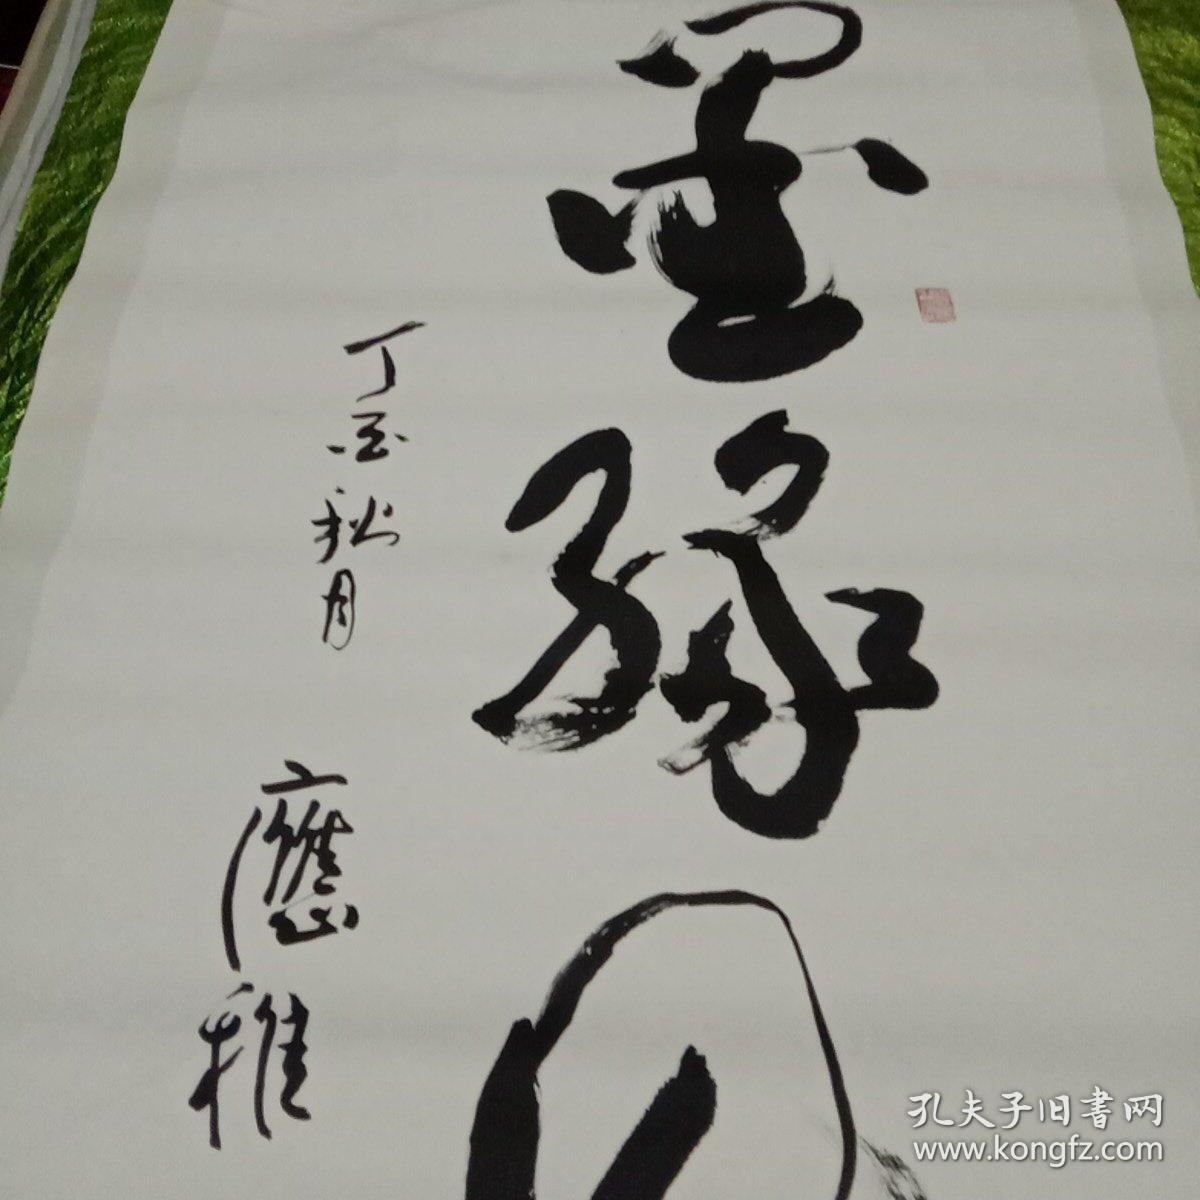 墨緣
丁酉秋月
應
孔夫子旧書网
www.kongfz.com